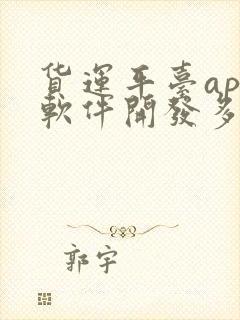 貨運平臺ap
軟件開發多
郭宇